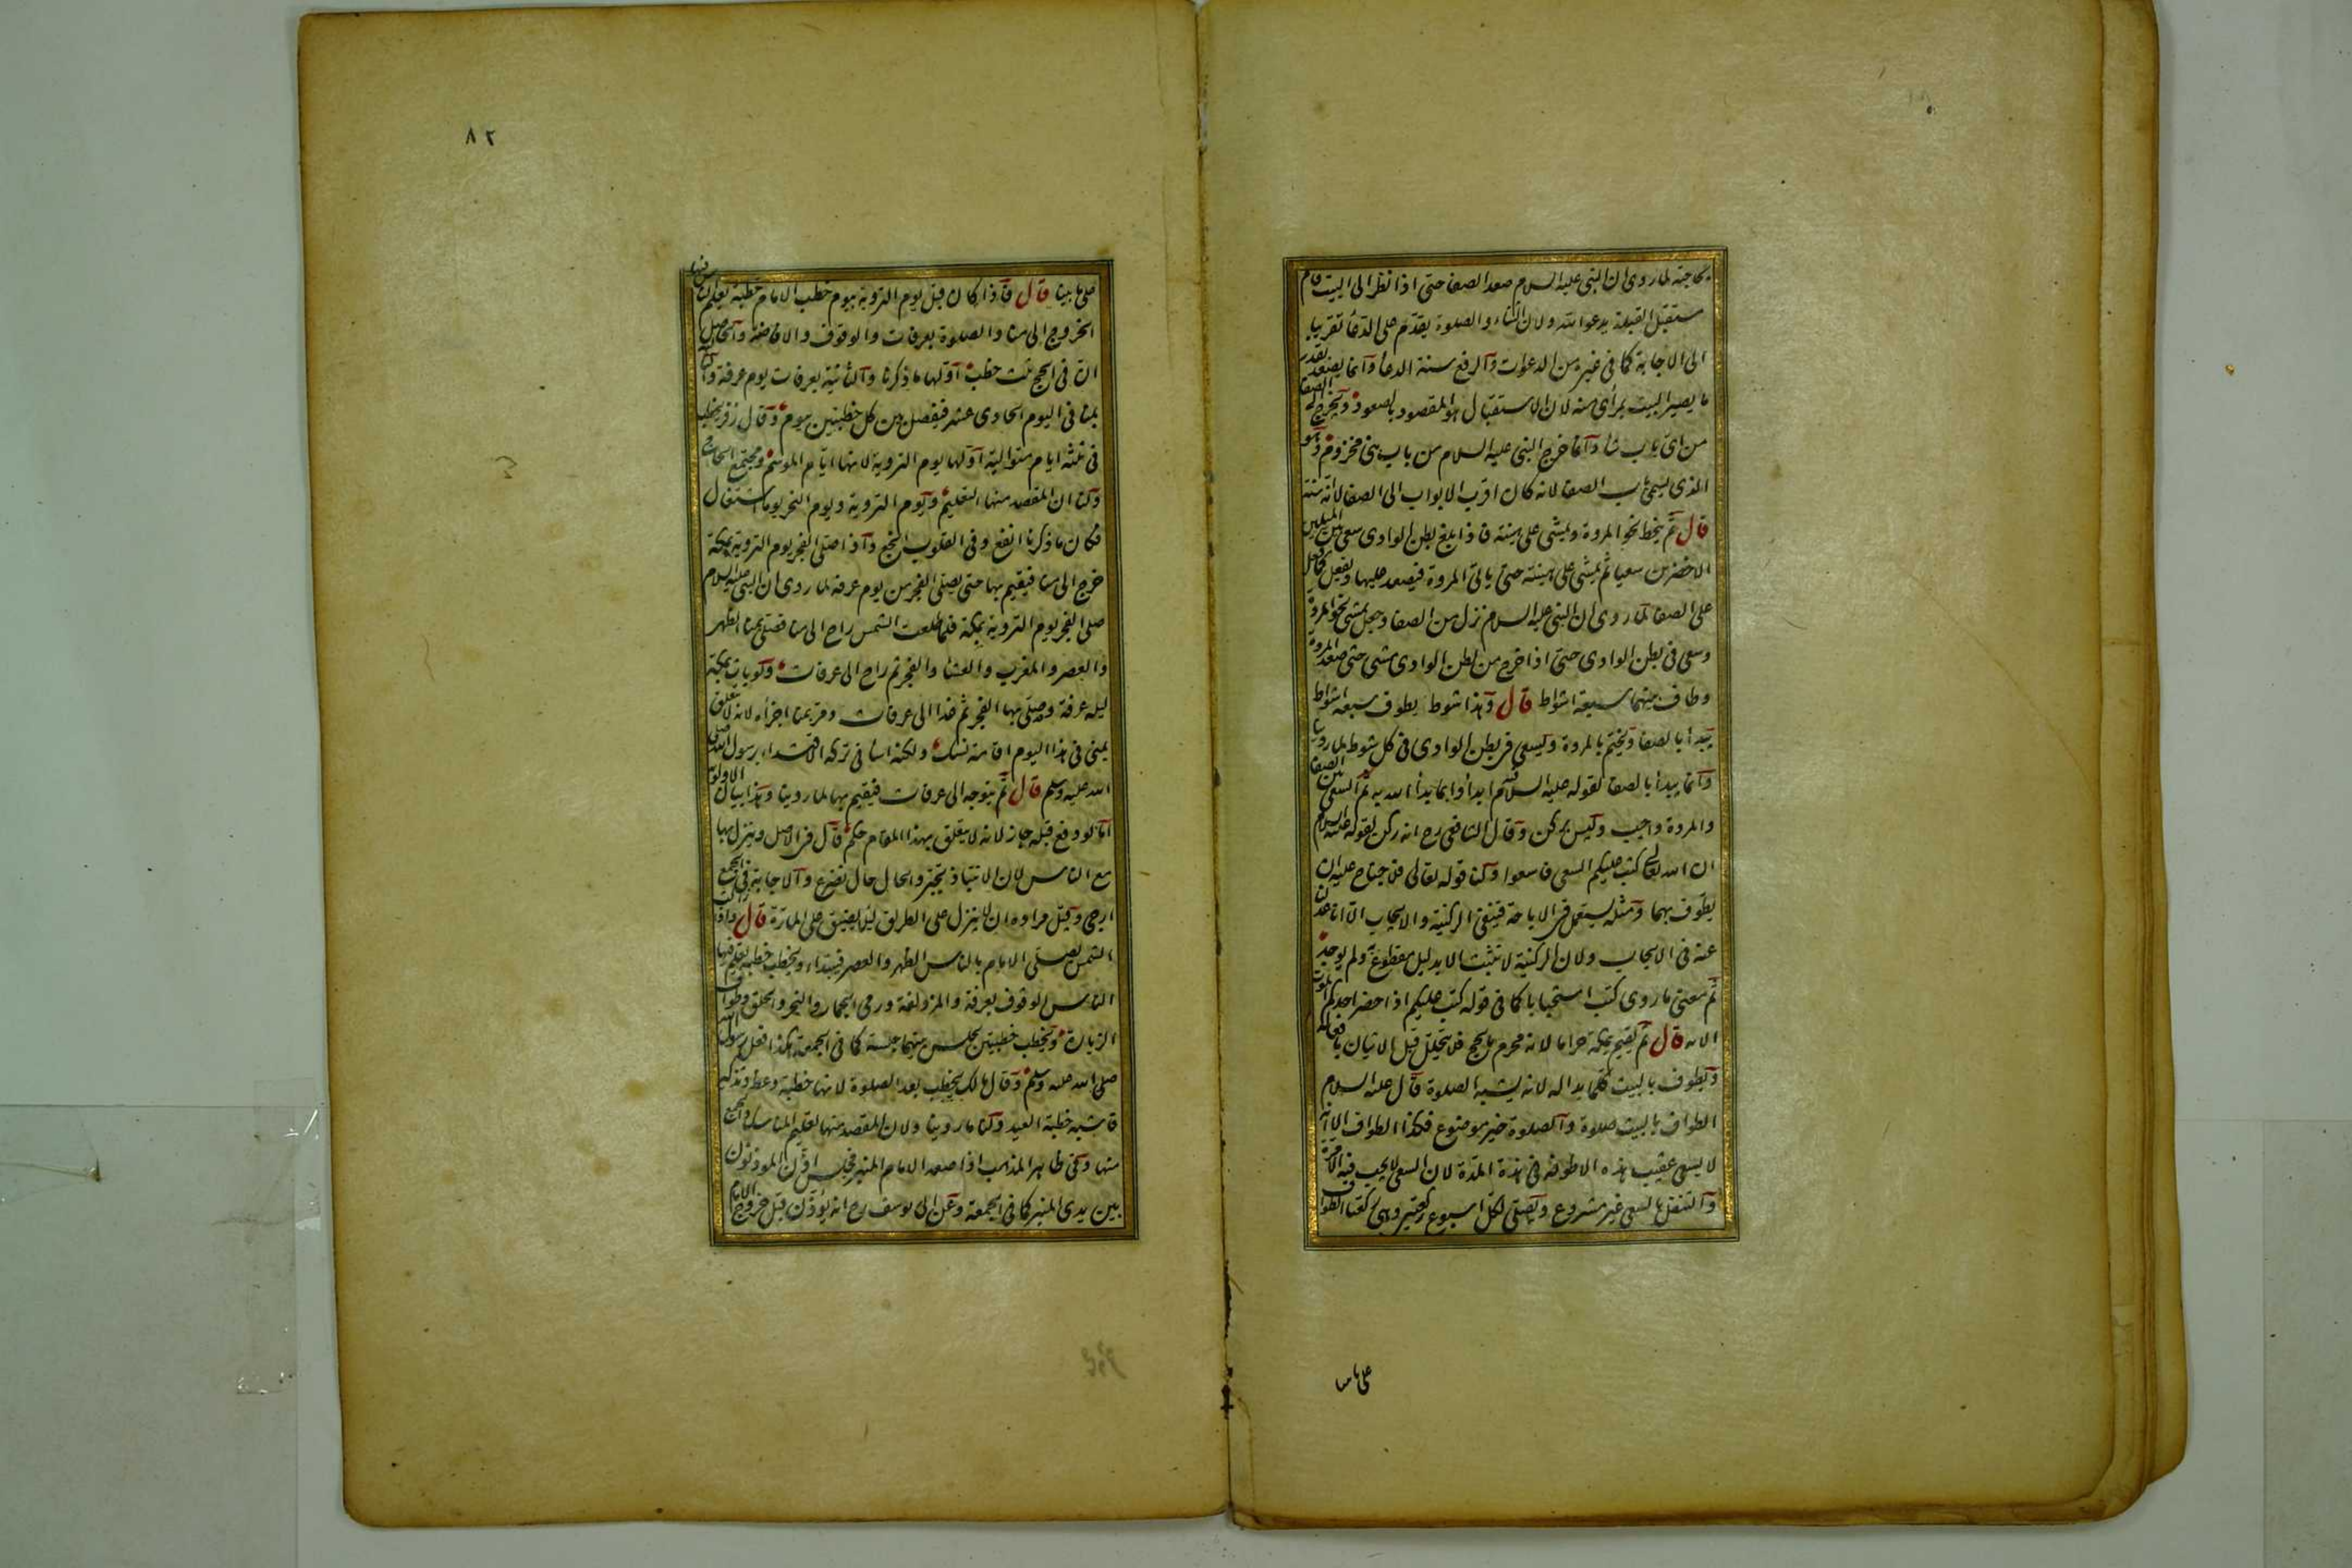 بحاجته لما روى ان النبى عليه السلام صعد الصفا حتى اذا نظر الى البيت قام
مستقبل القبلة يدعوا الله ولان الثناء والصلوة يقدم على الدعا تقريبا
الى الاجابة كما فى غيره من الدعوات والرفع سنة الدعا وانما يصعد بقدر
ما يصير البيت بمرأى منه لان الاستقبال هو المقصود بالصعود ويخرج الى الصفا
من اى باب شا وانما خرج النبى عليه السلام من باب بنى مخزوم وهو
الذى يسمى باب الصفا لانه كان اقرب الابواب الى الصفا لا انه سنة
قال ثم ينحط نحو المروة ويمشى على هينته فاذا بلغ بطن الوادى سعى بين الميلين
الاخضرين سعيا ثم يمشى على هينته حتى ياتى المروة فيصعد عليها ويفعل كما فعل
على الصفا لما روى ان النبى عليه السلام نزل من الصفا وجعل يمشى نحو المروة
وسعى فى بطن الوادى حتى اذا خرج من بطن الوادى مشى حتى صعد المروة
وطاف بينهما سبعة اشواط قال وهذا شوط يطوف سبعة اشواط
يبدا بالصفا ويختم بالمروة ويسعى فى بطن الوادى فى كل شوط لما روينا
وانما يبدا بالصفا لقوله عليه السلام ابدأوا بما بدأ الله به ثم السعى بين الصفا
والمروة واجب وليس بركن وقال الشافعى رح انه ركن لقوله عليه السلام
ان الله تعالى كتب عليكم السعى فاسعوا ولنا قوله تعالى فلا جناح عليه ان
يطوف بهما ومثله يستعمل فى الاباحة فينفى الركنية والايجاب الا انا عدلنا
عنه فى الايجاب ولان الركنية لا تثبت الا بدليل مقطوع ولم يوجد
ثم معنى ما روى كتب استحبابا كما فى قوله كتب عليكم اذا حضر احدكم الموت
الاية قال ثم يقيم بمكة حراما لانه محرم بالحج فلا يتحلل قبل الاتيان بافعاله
ويطوف بالبيت كلما بدا له لانه يشبه الصلوة قال عليه السلام
الطواف بالبيت صلاة والصلوة خير موضوع فكذا الطواف الا انه
لا يسعى عقيب هذه الاطوفة فى هذه المدة لان السعى لا يجب فيه الا مرة
والتنفل بالسعى غير مشروع ويصلى لكل اسبوع ركعتين وهى ركعتا الطواف
على ما
٨٢
على ما بينا قال فاذا كان قبل يوم التروية بيوم خطب الامام خطبة يعلم الناس فيها
الخروج الى منا والصلوة بعرفات والوقوف والافاضة والحاصل
ان فى الحج ثلث خطب اولها ما ذكرنا والثانية بعرفات يوم عرفة والثالثة
بمنا فى اليوم الحادى عشر فيفصل بين كل خطبتين بيوم وقال زفر يخطب
فى ثلثة ايام متوالية اولها يوم التروية لانها ايام الموسم ومجتمع الحاج
ولنا ان المقصد منها التعليم ويوم التروية ويوم النحر يوما اشتغال
فكان ما ذكرنا انفع وفى القلوب انجع واذا صلى الفجر يوم التروية بمكة
خرج الى منا فيقيم بها حتى يصلى الفجر من يوم عرفة لما روى ان النبى عليه السلام
صلى الفجر يوم التروية بمكة فلما طلعت الشمس راح الى منا فصلى بمنا الظهر
والعصر والمغرب والعشا والفجر ثم راح الى عرفات ولو بات بمكة
ليلة عرفة وصلى بها الفجر ثم غدا الى عرفات ومر بمنا اجزاه لانه لا يتعلق
بمنى فى هذا اليوم اقامة نسك ولكنه اسا فى تركه الاقتداء برسول الله صلى
الله عليه وسلم قال ثم يتوجه الى عرفات فيقيم بها لما روينا وهذا بيان الاولوية
اما لو دفع قبله جاز لانه لا يتعلق بهذا المقام حكم قال فى الاصل وينزل بها
مع الناس لان الانتباذ تجبر والحال حال تضرع والاجابة فى الجمع
ارجى وقيل مراده ان لا ينزل على الطريق ليلا يضيق على المارة قال واذا زالت
الشمس يصلى الامام بالناس الظهر والعصر فيبتداء ويخطب خطبة يعلم فيها
الناس الوقوف بعرفة والمزدلفة ورمى الجمار والنحر والحلق وطواف
الزيارة ويخطب خطبتين يجلس بينهما جلسة كما فى الجمعة هكذا فعل رسول الله
صلى الله عليه وسلم وقال مالك يخطب بعد الصلوة لانها خطبة وعظ وتذكير
فاشبه خطبة العيد ولنا ما روينا ولان المقصد منها تعليم المناسك والجمع
منها وفى ظاهر المذهب اذا صعد الامام المنبر فجلس اذن المؤذنون
بين يدى المنبر كما فى الجمعة وعن ابى يوسف رح انه يؤذن قبل خروج الامام